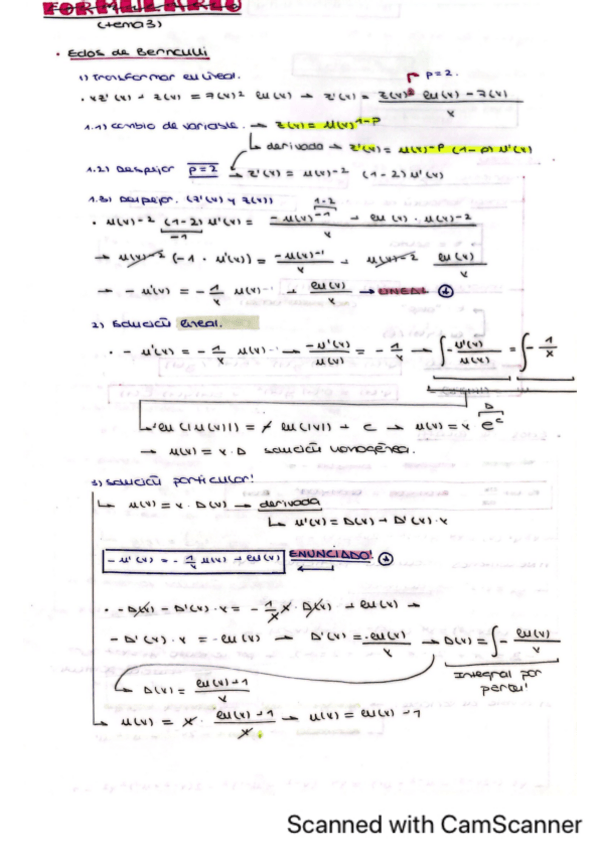 FORMULARIO
(tema 3)
· Edos de Bernoulli
1) Transformar en lineal.
· xz'(x) + z(x) = z(x)² ln(x) → z'(x) = z(x)² ln(x) - z(x) / x
p=2.
1.1) cambio de variable. → z(x) = u(x)^1-p
↳ derivada → z'(x) = u(x)^-p (1-p) u'(x)
1.2) Despejar p=2 → z'(x) = u(x)^-2 (1-2) u'(x)
1.3) Despejar. (z'(x) y z(x))
1-2
· u(x)^-2 (1-2) u'(x) = -u(x)^-1 + ln(x) · u(x)^-2 / x
-1
→ u(x)^-2 (-1 · u'(x)) = -u(x)^-1 / x + u(x)^-2 ln(x) / x
→ - u'(x) = - 1/x u(x)^-1 + ln(x)/x → LINEAL
2) Solución lineal.
· - u'(x) = - 1/x u(x) → -u'(x)/u(x) = - 1/x → ∫ - u'(x)/u(x) = ∫ - 1/x
D
↳ ln(|u(x)|) = ln(|x|) + c → u(x) = x e^c
→ u(x) = x · D solución homogénea.
3) Solución particular!
↳ u(x) = x · D(x) → derivada
↳ u'(x) = D(x) + D'(x) · x
- u'(x) = - 1/x u(x) + ln(x) ENUNCIADO!
· - D(x) - D'(x) · x = - 1/x x · D(x) + ln(x) →
- D'(x) · x = - ln(x) → D'(x) = - ln(x)/x → D(x) = ∫ - ln(x)/x
Integral por
partes!
↳ D(x) = ln(x) + 1 / x
↳ u(x) = x · ln(x) + 1 / x → u(x) = ln(x) + 1
Scanned with CamScanner